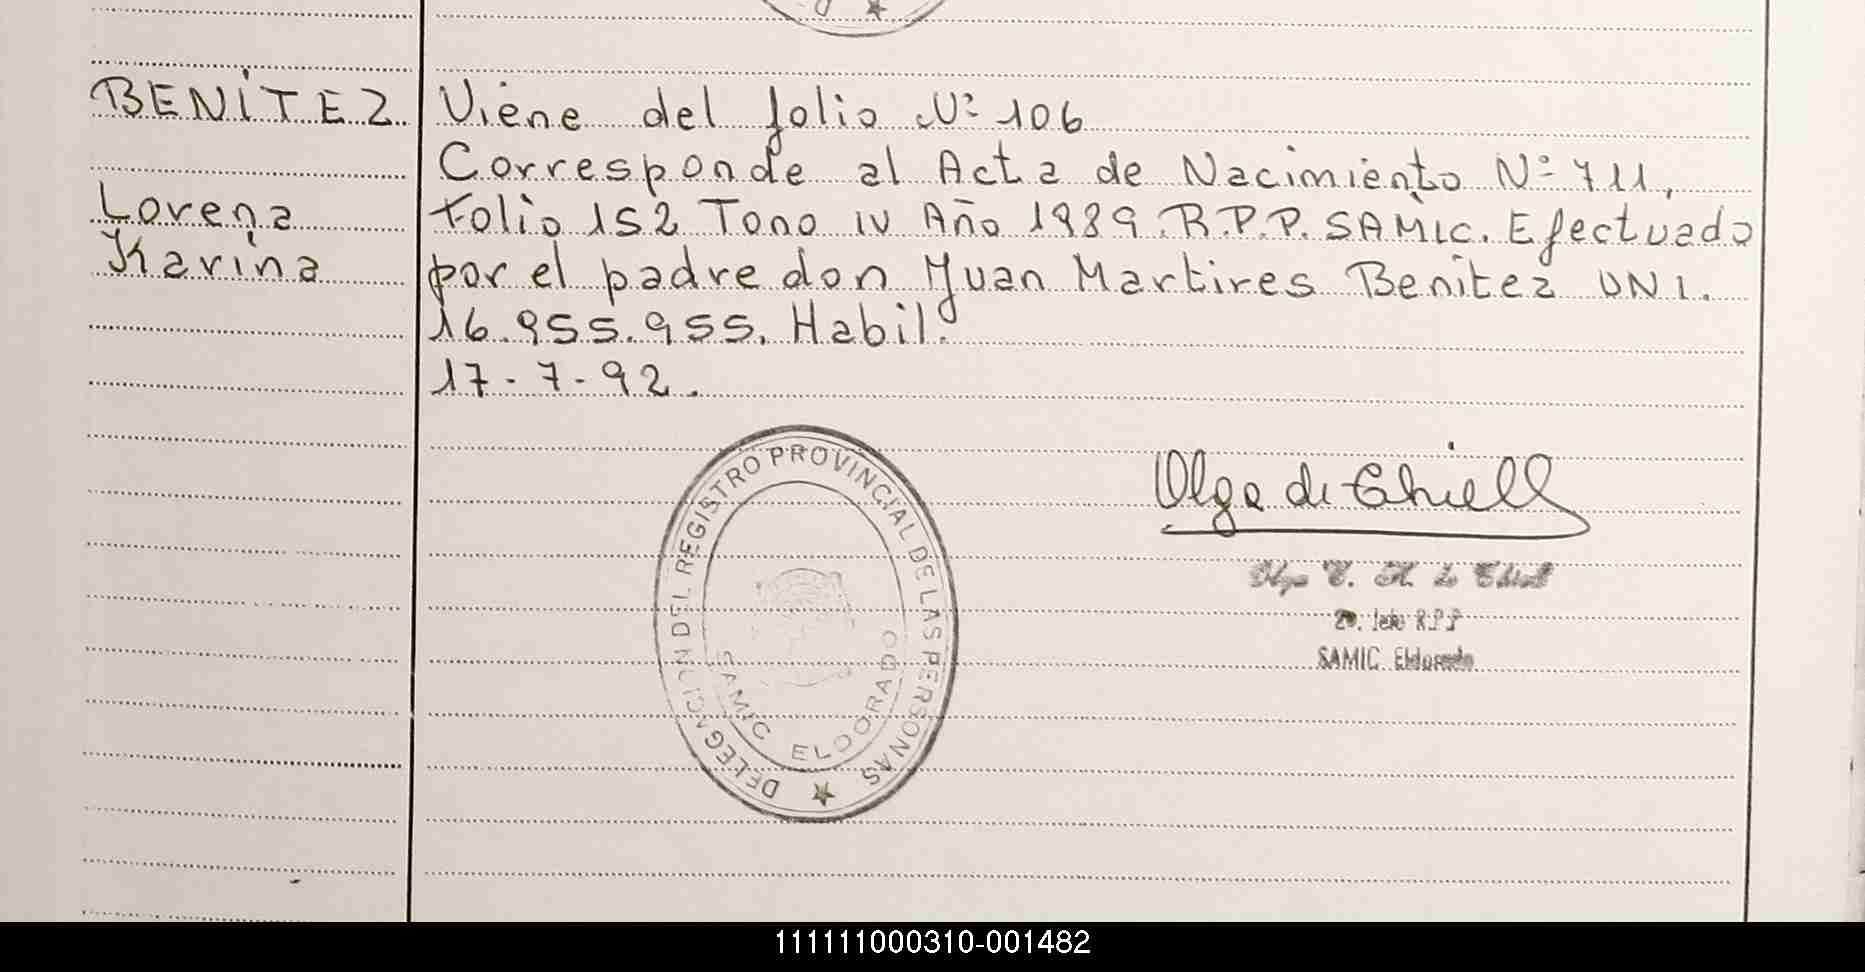 BENITEZ
Lorena
Karina
Viene del folio Nº 106
Corresponde al Acta de Nacimiento Nº 711,
folio 152 Tomo IV Año 1989. R.P.P. SAMIC. Efectuado
por el padre don Juan Martires Benitez DNI.
16.955.955. Habil.
17-7-92.
Olga de Chiell
DELEGACION DEL REGISTRO PROVINCIAL DE LAS PERSONAS
SAMIC ELDORADO
Jefe R.P.P
SAMIC Eldorado
111111000310-001482